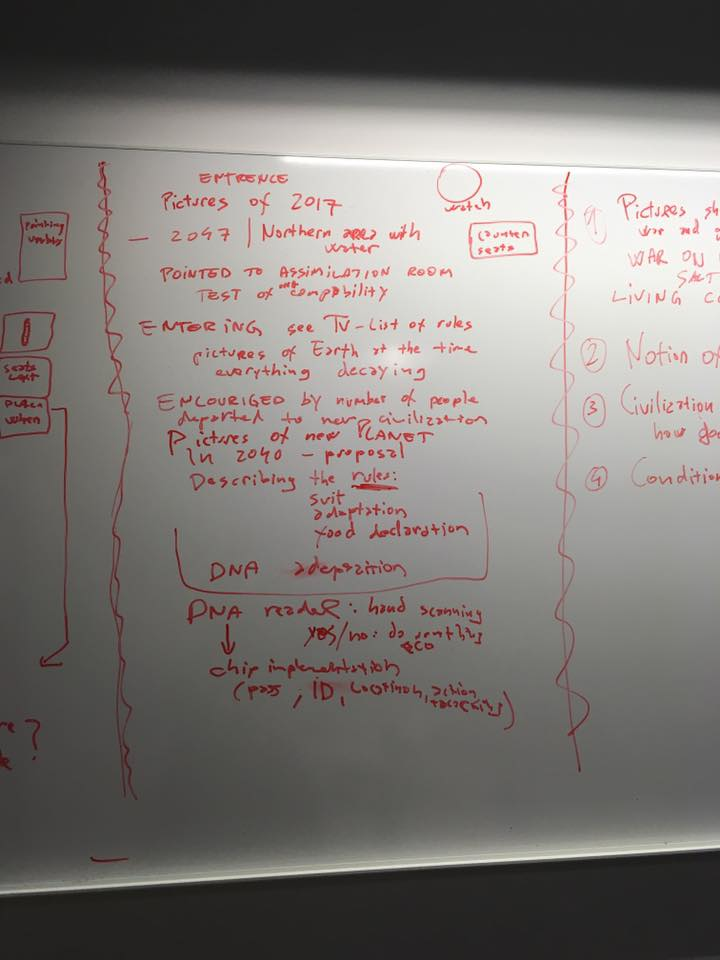 ENTRENCE
Pictures of 2017
watch
— 2047 | Northern area with
water
counter
seats
POINTED TO ASSIMILATION ROOM
TEST of compability
ENTERING see TV-List of rules
pictures of Earth at the time
everything decaying
ENCOURIGED by number of people
departed to new civilization
Pictures of new PLANET
In 2040 - proposal
Describing the rules:
suit
adaptation
food declaration
DNA
DNA reader: hand scanning
yes/no: do
ECO
chip implementation
(pass, ID, Location, action
seats
when
?
1 Pictures
war and
WAR ON
LIVING
2 Notion of
3 Civilization
how
4 Condition